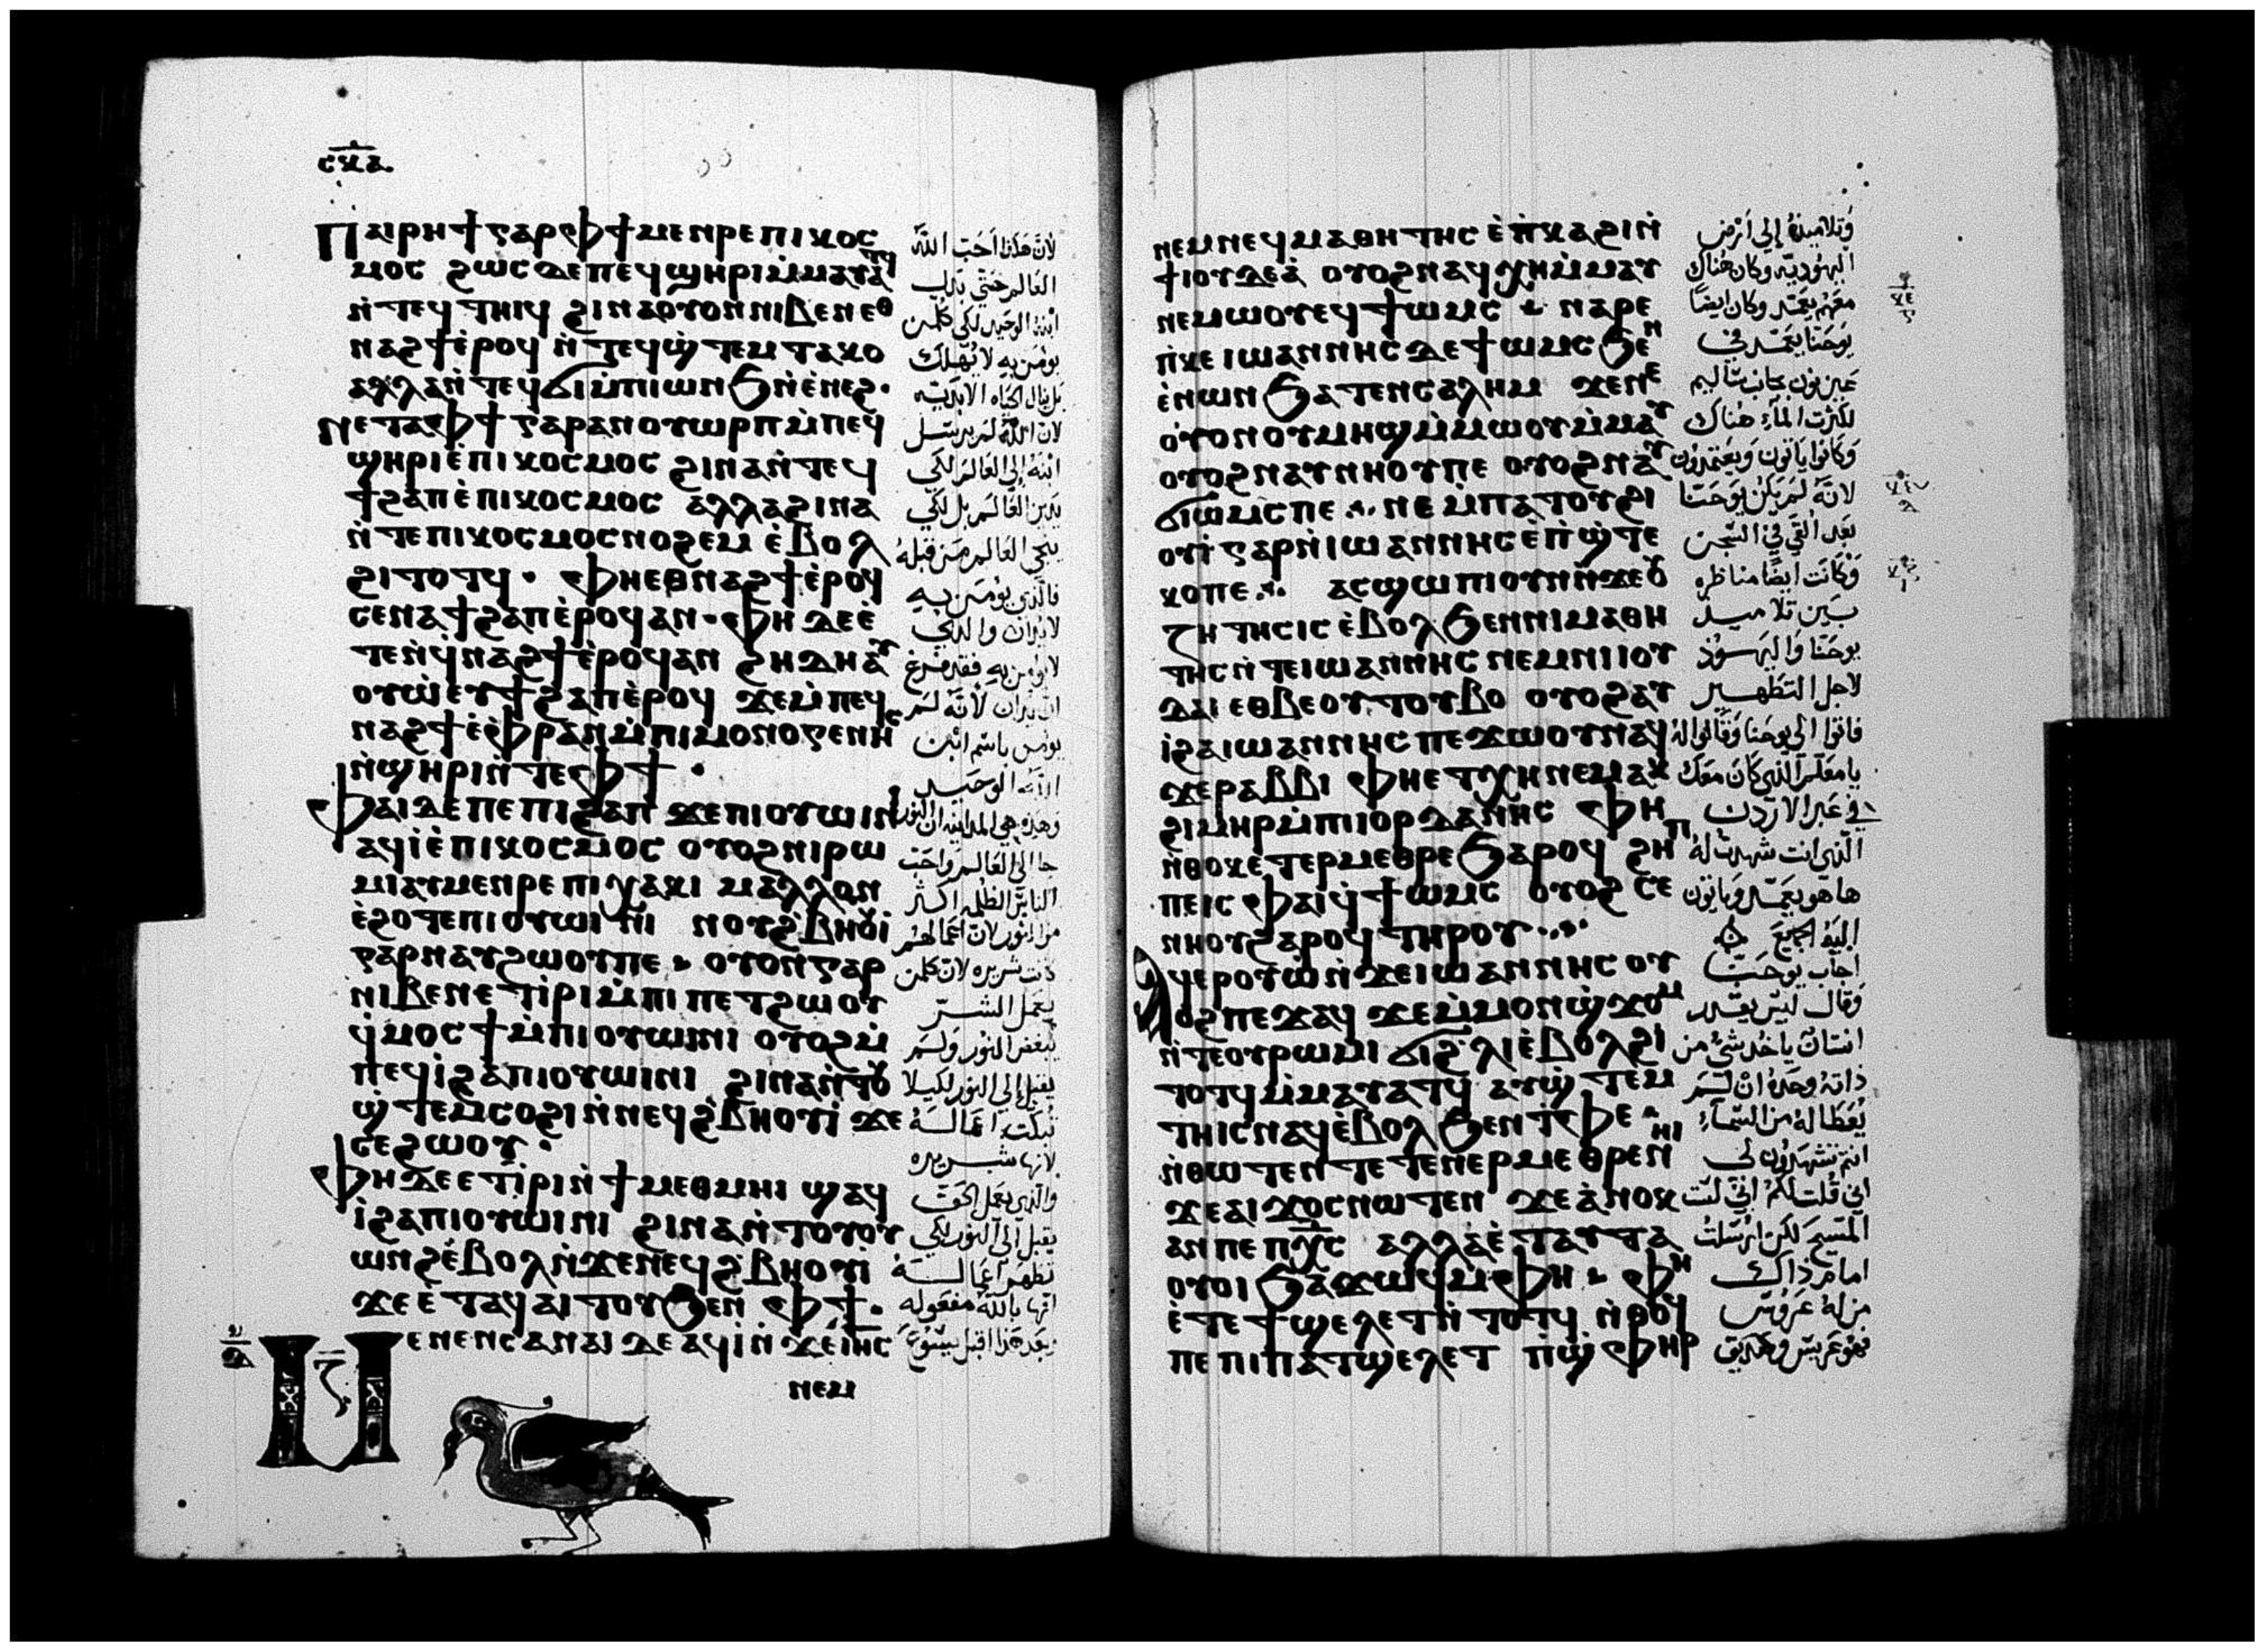 ⲥⲕⲇ
Ⲡⲁⲓⲣⲏϯ ⲅⲁⲣ ⲫϯ ⲙⲉⲛⲣⲉ ⲡⲓⲕⲟⲥ
ⲙⲟⲥ ϩⲱⲥⲇⲉ ⲡⲉϥϣⲏⲣⲓ ⲙ̇ⲙⲁⲩⲁⲧϥ
ⲛ̇ⲧⲉϥⲧⲏⲓϥ ϩⲓⲛⲁ ⲟⲩⲟⲛ ⲛⲓⲃⲉⲛ ⲉⲑ
ⲛⲁϩϯ ⲉ̇ⲣⲟϥ ⲛ̇ⲧⲉϥϣ̇ⲧⲉⲙⲧⲁⲕⲟ
ⲁⲗⲗⲁ ⲛ̇ⲧⲉϥϭⲓ ⲙ̇ⲡⲓⲱⲛϧ ⲛ̇ⲉ̇ⲛⲉϩ.
Ⲛⲉⲧⲁ ⲫϯ ⲅⲁⲣ ⲁⲛ ⲟⲩⲱⲣⲡ ⲙ̇ⲡⲉϥ
ϣⲏⲣⲓ ⲉ̇ⲡⲓⲕⲟⲥⲙⲟⲥ ϩⲓⲛⲁ ⲛ̇ⲧⲉϥ
ϯϩⲁⲡ ⲉ̇ⲡⲓⲕⲟⲥⲙⲟⲥ ⲁⲗⲗⲁ ϩⲓⲛⲁ
ⲛ̇ⲧⲉ ⲡⲓⲕⲟⲥⲙⲟⲥ ⲛⲟϩⲉⲙ ⲉ̇ⲃⲟⲗ
ϩⲓⲧⲟⲧϥ · ⲫⲏ ⲉⲑⲛⲁϩϯ ⲉ̇ⲣⲟϥ
ⲥⲉⲛⲁϯϩⲁⲡ ⲉ̇ⲣⲟϥ ⲁⲛ · ⲫⲏ ⲇⲉ ⲉ̇
ⲧⲉⲛ̇ϥⲛⲁϩϯ ⲉ̇ⲣⲟϥ ⲁⲛ ϩⲏⲇⲏ ⲁⲩ
ⲟⲩⲱ ⲉⲩϯϩⲁⲡ ⲉ̇ⲣⲟϥ ϫⲉ ⲙ̇ⲡⲉϥ
ⲛⲁϩϯ ⲉ̇ⲫⲣⲁⲛ ⲙ̇ⲡⲓⲙⲟⲛⲟⲅⲉⲛⲏⲥ
ⲛ̇ϣⲏⲣⲓ ⲛ̇ⲧⲉ ⲫϯ ·
Ⲫⲁⲓ ⲇⲉ ⲡⲉ ⲡⲓϩⲁⲡ ϫⲉ ⲡⲓⲟⲩⲱⲓⲛⲓ
ⲁϥⲓ̇ ⲉ̇ⲡⲓⲕⲟⲥⲙⲟⲥ ⲟⲩⲟϩ ⲛⲓⲣⲱ
ⲙⲓ ⲁⲩⲙⲉⲛⲣⲉ ⲡⲓⲭⲁⲕⲓ ⲙⲁⲗⲗⲟⲛ
ⲉ̇ϩⲟⲧⲉ ⲡⲓⲟⲩⲱⲓⲛⲓ ⲛⲟⲩϩ̇ⲃⲏⲟⲩⲓ̇
ⲅⲁⲣ ⲛⲁⲩϩⲱⲟⲩ ⲡⲉ · ⲟⲩⲟⲛ ⲅⲁⲣ
ⲛⲓⲃⲉⲛ ⲉⲧⲓ̇ⲣⲓ ⲙ̇ⲡⲓⲡⲉⲧϩⲱⲟⲩ
ϥ̇ⲙⲟⲥϯ ⲙ̇ⲡⲓⲟⲩⲱⲓⲛⲓ ⲟⲩⲟϩ ⲙ̇
ⲡⲉϥⲓ̇ ϩⲁ ⲡⲓⲟⲩⲱⲓⲛⲓ ϩⲓⲛⲁ ⲛ̇ⲧⲟⲩ
ϣ̇ⲧⲉⲙⲥⲟϩⲓ ⲛ̇ⲛⲉϥϩ̇ⲃⲏⲟⲩⲓ̇ ϫⲉ
ⲥⲉϩⲱⲟⲩ ·
Ⲫⲏ ⲇⲉ ⲉⲧⲓ̇ⲣⲓ ⲛ̇ϯⲙⲉⲑⲙⲏⲓ ϣⲁϥ
ⲓ̇ ϩⲁ ⲡⲓⲟⲩⲱⲓⲛⲓ ϩⲓⲛⲁ ⲛ̇ⲧⲟⲩⲟⲩ
ⲱⲛϩ ⲉ̇ⲃⲟⲗ ⲛ̇ϫⲉ ⲛⲉϥϩ̇ⲃⲏⲟⲩⲓ̇
ϫⲉ ⲉ̇ⲧⲁϥⲁⲓⲧⲟⲩ ϧⲉⲛ ⲫϯ ·
Ⲙⲉⲛⲉⲛⲥⲁ ⲛⲁⲓ ⲇⲉ ⲁϥⲓ̇ ⲛ̇ϫⲉ ⲓ̅ⲏ̅ⲥ̅
ⲛⲉⲙ
لان هكذا احب الله
العالم حتي بذل
ابنه الوحيد لكي كلمن
يومن به لا يهلك
بل ينال الحياه الابديه
لان الله لم يرسل
ابنه إلي العالم لكي
يدين العالم بل لكي
ينجي العالم من قبله
فالذي يومن به
لا يدان والذي
لا يومن به فقد فرغ
ان يدان لأنه لم
يومن باسم ابن
الله الوحيد
وهذه هي المداينه ان النور
جا الي العالم واحب
الناس الظلمه اكثر
من النور لان اعمالهم
كانت شريره لان كلمن
يعمل الشر
يبغض النور ولم
يقبل إلي النور لكيلا
تبكت اعماله
لانها شريره
والذي يعمل الحق
يقبل الي النور لكي
تظهر اعماله
انها بالله مفعوله
وبعد هذا اقبل يسوع
ⲛⲉⲙ ⲛⲉϥⲙⲁⲑⲏⲧⲏⲥ ⲉ̇ⲡ̇ⲕⲁϩⲓ ⲛ̇
ϯⲓⲟⲩⲇⲉⲁ̇ ⲟⲩⲟϩ ⲛⲁϥⲭⲏ ⲙ̇ⲙⲁⲩ
ⲛⲉⲙⲱⲟⲩ ⲉϥϯⲱⲙⲥ · ⲛⲁⲣⲉ
ⲡ̇ⲕⲉ ⲓⲱⲁⲛⲛⲏⲥ ⲇⲉ ϯⲱⲙⲥ ϧⲉⲛ
ⲉ̇ⲛⲱⲛ ϧⲁⲧⲉⲛ ⲥⲁⲗⲏⲙ ϫⲉ ⲛⲉ
ⲟⲩⲟⲛ ⲟⲩⲙⲏϣ ⲙ̇ⲙⲱⲟⲩ ⲙ̇ⲙⲁⲩ
ⲟⲩⲟϩ ⲛⲁⲩⲛⲏⲟⲩ ⲡⲉ ⲟⲩⲟϩ ⲛⲁⲩ
ϭⲓⲱⲙⲥ ⲡⲉ ⲛⲉ ⲙ̇ⲡⲁⲧⲟⲩϩⲓ
ⲟⲩⲓ̇ ⲅⲁⲣ ⲛ̇ⲓⲱⲁⲛⲛⲏⲥ ⲉ̇ⲡ̇ϣ̇ⲧⲉ
ⲕⲟ ⲡⲉ ⲁⲥϣⲱⲡⲓ ⲟⲩⲛ ⲛ̇ϫⲉ ⲟⲩ
ⲍⲏⲧⲏⲥⲓⲥ ⲉ̇ⲃⲟⲗ ϧⲉⲛ ⲛⲓⲙⲁⲑⲏ
ⲧⲏⲥ ⲛ̇ⲧⲉ ⲓⲱⲁⲛⲛⲏⲥ ⲛⲉⲙ ⲛⲓⲓⲟⲩ
ⲇⲁⲓ ⲉⲑⲃⲉ ⲟⲩⲧⲟⲩⲃⲟ ⲟⲩⲟϩ ⲁⲩ
ⲓ̇ ϩⲁ ⲓⲱⲁⲛⲛⲏⲥ ⲡⲉϫⲱⲟⲩ ⲛⲁϥ
ϫⲉ ⲣⲁⲃⲃⲓ ⲫⲏ ⲉⲧⲭⲏ ⲛⲉⲙⲁⲕ
ϩⲓⲙⲏⲣ ⲙ̇ⲡⲓⲟⲣⲇⲁⲛⲏⲥ ⲫⲏ
ⲛ̇ⲑⲟⲕ ⲉⲧⲉⲣⲙⲉⲑⲣⲉ ϧⲁⲣⲟϥ ϩⲏⲡ
ⲡⲉ ⲓⲥ ⲫⲁⲓ ϥ̇ϯⲱⲙⲥ ⲟⲩⲟϩ ⲥⲉ
ⲛⲏⲟⲩ ϩⲁⲣⲟϥ ⲧⲏⲣⲟⲩ
Ⲁϥⲉⲣⲟⲩⲱ̇ ⲛ̇ϫⲉ ⲓⲱⲁⲛⲛⲏⲥ ⲟⲩ
ⲟϩ ⲡⲉϫⲁϥ ϫⲉ ⲙ̇ⲙⲟⲛ ϣ̇ϫⲟⲙ
ⲛ̇ⲧⲉ ⲟⲩⲣⲱⲙⲓ ϭⲓ ϩ̇ⲗⲓ ⲉ̇ⲃⲟⲗ ϩⲓ
ⲧⲟⲧϥ ⲙ̇ⲙⲁⲩⲁⲧϥ ⲁⲩϣ̇ⲧⲉⲙ
ⲧⲏⲓⲥ ⲛⲁϥ ⲉ̇ⲃⲟⲗ ϧⲉⲛ ⲧ̇ⲫⲉ
ⲛ̇ⲑⲱⲧⲉⲛ ⲧⲉⲧⲉⲛⲉⲣⲙⲉⲑⲣⲉ ⲛⲏⲓ
ϫⲉ ⲁⲓϫⲟⲥ ⲛⲱⲧⲉⲛ ϫⲉ ⲁ̇ⲛⲟⲕ
ⲁⲛ ⲡⲉ ⲡⲭ̅ⲥ̅ ⲁⲗⲗⲁ ⲉ̇ⲧⲁⲩⲧⲁ
ⲟⲩⲟⲓ ϧⲁϫⲱϥ ⲙ̇ⲫⲏ · ⲫⲏ
ⲉ̇ⲧⲉ ϯϣⲉⲗⲉⲧ ⲛ̇ⲧⲟⲧϥ ⲛ̇ⲑⲟϥ
ⲡⲉ ⲡⲓⲡⲁⲧϣⲉⲗⲉⲧ ⲡ̇ϣ̇ⲫⲏⲣ
وتلاميذه إلي ارض
اليهوديه وكان هناك
معهم يعمد وكان ايضاً
يوحنا يعمد في
عين نون بجانب ساليم
لكثرت الماء هناك
وكانوا ياتون ويعتمدون
لانه لم يكن يوحنا
بعد القي في السجن
وكانت ايضاً مناظره
بين تلاميذ
يوحنا واليهود
لاجل التطهير
فاتوا الي يوحنا وقالوا له
يا معلم الذي كان معك
في عبر الاردن
الذي انت شهدت له
ها هو يعمد وياتون
اليه الجميع
اجاب يوحنا
وقال ليس يقدر
انسان ياخذ شيء من
ذاته وحده ان لم
يعطا له من السماء
انتم تشهدون لي
اني قلت لكم اني لست
المسيح لكن ارسلت
امام ذاك
من له عروس
فهو عريس وصديق